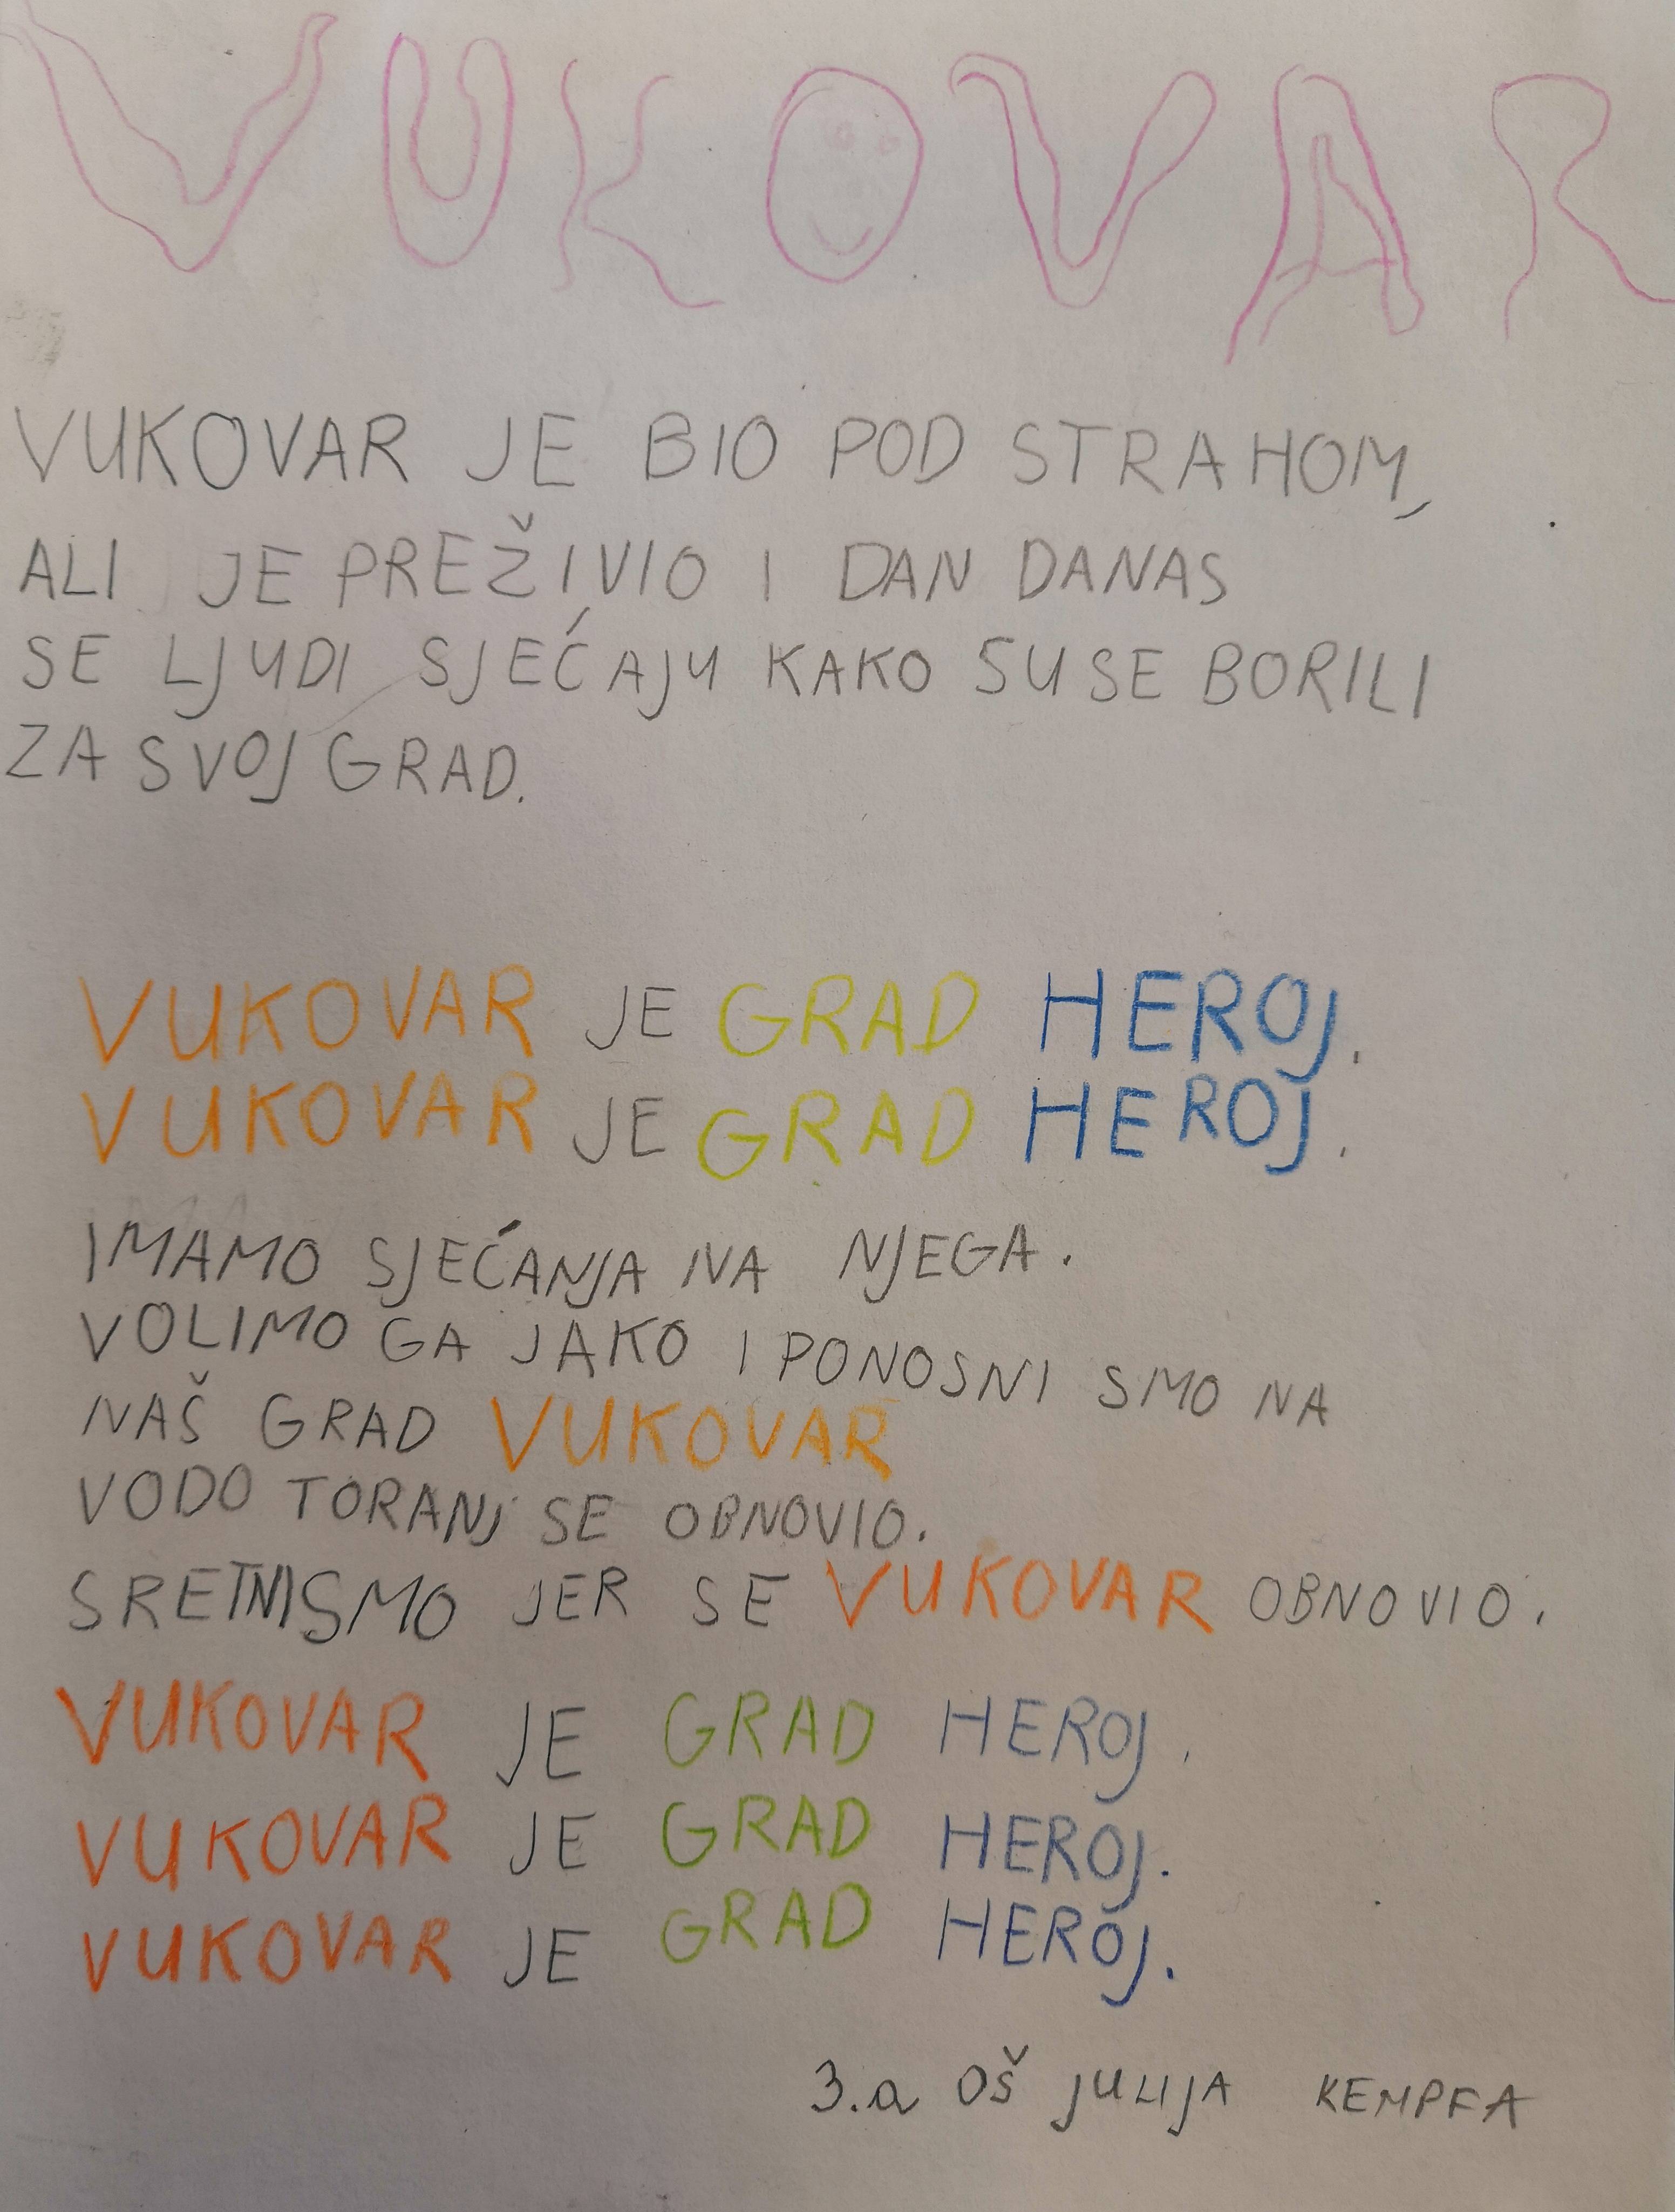 VUKOVAR
VUKOVAR JE BIO POD STRAHOM,
ALI JE PREŽIVIO I DAN DANAS
SE LJUDI SJEĆAJU KAKO SU SE BORILI
ZA SVOJ GRAD.
VUKOVAR JE GRAD HEROJ.
VUKOVAR JE GRAD HEROJ.
IMAMO SJEĆANJA NA NJEGA.
VOLIMO GA JAKO I PONOSNI SMO NA
NAŠ GRAD VUKOVAR
VODO TORANJ SE OBNOVIO.
SRETNI SMO JER SE VUKOVAR OBNOVIO.
VUKOVAR JE GRAD HEROJ.
VUKOVAR JE GRAD HEROJ.
VUKOVAR JE GRAD HEROJ.
3.a OŠ JULIJA KEMPFA